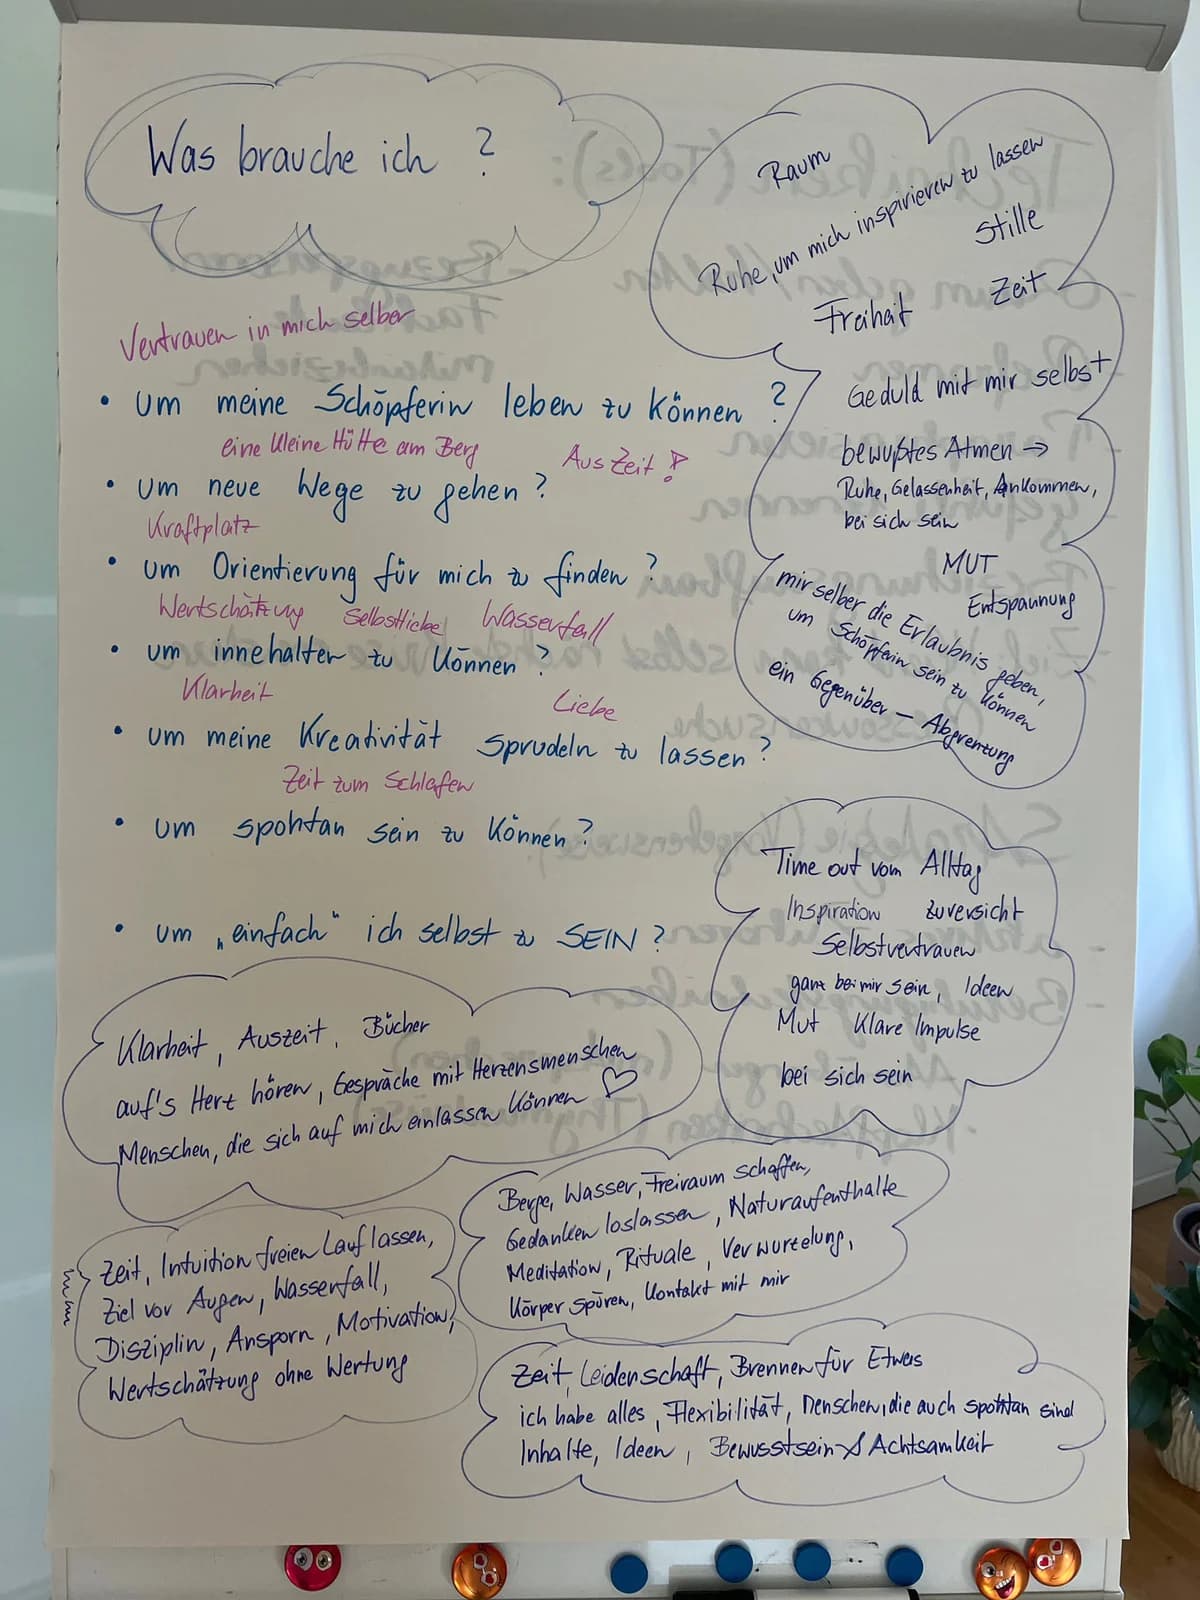 Was brauche ich ?
Vertrauen in mich selber
• um meine Schöpferin leben zu können ?
eine kleine Hütte am Berg
AusZeit !
• um neue Wege zu gehen ?
Kraftplatz
• um Orientierung für mich zu finden ?
Wertschätzung Selbstliebe Wasserfall
• um innehalten zu können ?
Klarheit
Liebe
• um meine Kreativität sprudeln zu lassen ?
Zeit zum Schlafen
• um spontan sein zu können ?
• um „einfach" ich selbst zu SEIN ?
Raum
Ruhe, um mich inspirieren zu lassen
Stille
Freiheit
Zeit
Geduld mit mir selbst
bewußtes Atmen →
Ruhe, Gelassenheit, Ankommen,
bei sich sein
MUT
Entspannung
mir selber die Erlaubnis geben,
um Schöpferin sein zu können
ein Gegenüber – Abgrenzung
Time out vom Alltag
Inspiration Zuversicht
Selbstvertrauen
ganz bei mir sein, Ideen
Mut Klare Impulse
bei sich sein
Klarheit, Auszeit, Bücher
auf's Herz hören, Gespräche mit Herzensmenschen
Menschen, die sich auf mich einlassen können ♡
Zeit, Intuition freien Lauf lassen,
Ziel vor Augen, Wasserfall,
Disziplin, Ansporn, Motivation,
Wertschätzung ohne Wertung
Berge, Wasser, Freiraum schaffen,
Gedanken loslassen, Naturaufenthalte
Meditation, Rituale, Verwurzelung,
Körper spüren, Kontakt mit mir
Zeit, Leidenschaft, Brennen für Etwas
ich habe alles, Flexibilität, Menschen, die auch spontan sind
Inhalte, Ideen, Bewusstsein & Achtsamkeit